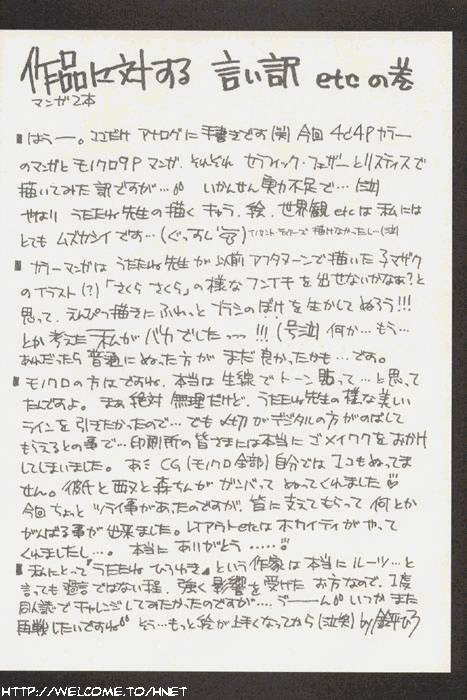 作品に対する 言い訳 etc の巻
マンガ2本
■はうー。ココだけ アナログに手書きです(笑) 今回 4C4P カラー
のマンガと モノクロ9P マンガ、それぞれ セラフィック・フェザーとリスティスで
描いてみた訳ですが…。いかんせん実力不足で…(泣)
やはり うたたね先生の描く キャラ、絵、世界観etcは私には
とても ムズカシイです…(ぐっすし
■カラーマンガは うたたね先生が以前アフタヌーンで描いた子マザク
のイラスト(?)「さくら さくら」の様なフンイキを出せないかなぁ?と
思って、えんぴつ描きに ふわっと ブラシのぼけを生かしてぬろう!!!
とか考えた私がバカでしたっっ!!!(号泣) 何か…もう…
あれだったら普通にぬった方が まだ良かったかも…です。
■モノクロの方はですね、本当は生線でトーン貼って…と思って
たんですよ。まあ絶対無理だけど、うたたね先生の様な美しい
ラインを引きたかったので…でも〆切がデジタルの方がのばして
もらえるとの事で…印刷所の皆さまには本当にゴメイワクをおかけ
してしまいました。あとCG(モノクロ全部)自分では1コもぬってま
せん。彼氏と西又と森ちんが ガンバって ぬってくれました♡
今回ちょっと ツライ事があったのですが、皆に支えてもらって何とか
がんばる事が出来ました。レイアウトetcはホカイティがやって
くれましたし…。本当にありがとう……♡
■私にとって『うたたね ひろゆき』という作家は本当にルーツ…と
言っても過言ではない程、強く影響を受けた お方なので、1度
同人誌でチャレンジしてみたかったのですが…。うーーん いつかまた
再戦したいですね そう…もっと絵が上手くなってから(泣笑) by
HTTP://WELCOME.TO/HNET